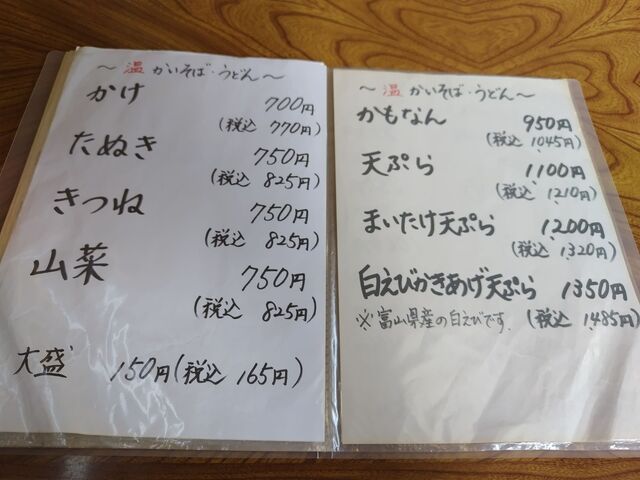 ～温かいそば・うどん～
かけ 700円
(税込 770円)
たぬき 750円
(税込 825円)
きつね 750円
(税込 825円)
山菜 750円
(税込 825円)
大盛 150円(税込 165円)
～温かいそば・うどん～
かもなん 950円
(税込 1045円)
天ぷら 1100円
(税込 1210円)
まいたけ天ぷら 1200円
(税込 1320円)
白えびかきあげ天ぷら 1350円
※富山県産の白えびです. (税込 1485円)